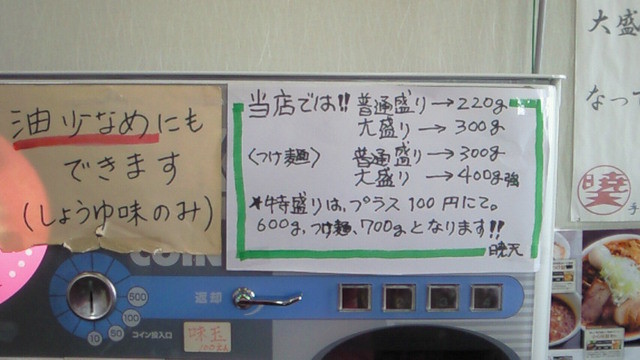 油少なめにも
できます
(しょうゆ味のみ)
当店では!! 普通盛り→220g
大盛り→300g
〈つけ麺〉 普通盛り→300g
大盛り→400g強
*特盛りは、プラス100円にて。
600g、つけ麺、700gとなります!!
暁天
大盛
なって
COIN
500
100
50
10
コイン投入口
返却
味玉